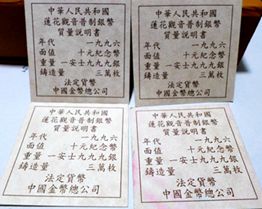 中華人民共和國
蓮花觀音普制銀幣
質量説明書
年代 一九九六
面值 十元紀念幣
重量 一安士九九九銀
鑄造量 三萬枚
法定貨幣
中國金幣總公司
中華人民共和國
蓮花觀音普制銀幣
質量説明書
年代 一九九六
面值 十元紀念幣
重量 一安士九九九銀
鑄造量 三萬枚
法定貨幣
中國金幣總公司
中華人民共和國
蓮花觀音普制銀幣
質量説明書
年代 一九九六
面值 十元紀念幣
重量 一安士九九九銀
鑄造量 三萬枚
法定貨幣
中國金幣總公司
中華人民共和國
蓮花觀音普制銀幣
質量説明書
年代 一九九六
面值 十元紀念幣
重量 一安士九九九銀
鑄造量 三萬枚
法定貨幣
中國金幣總公司